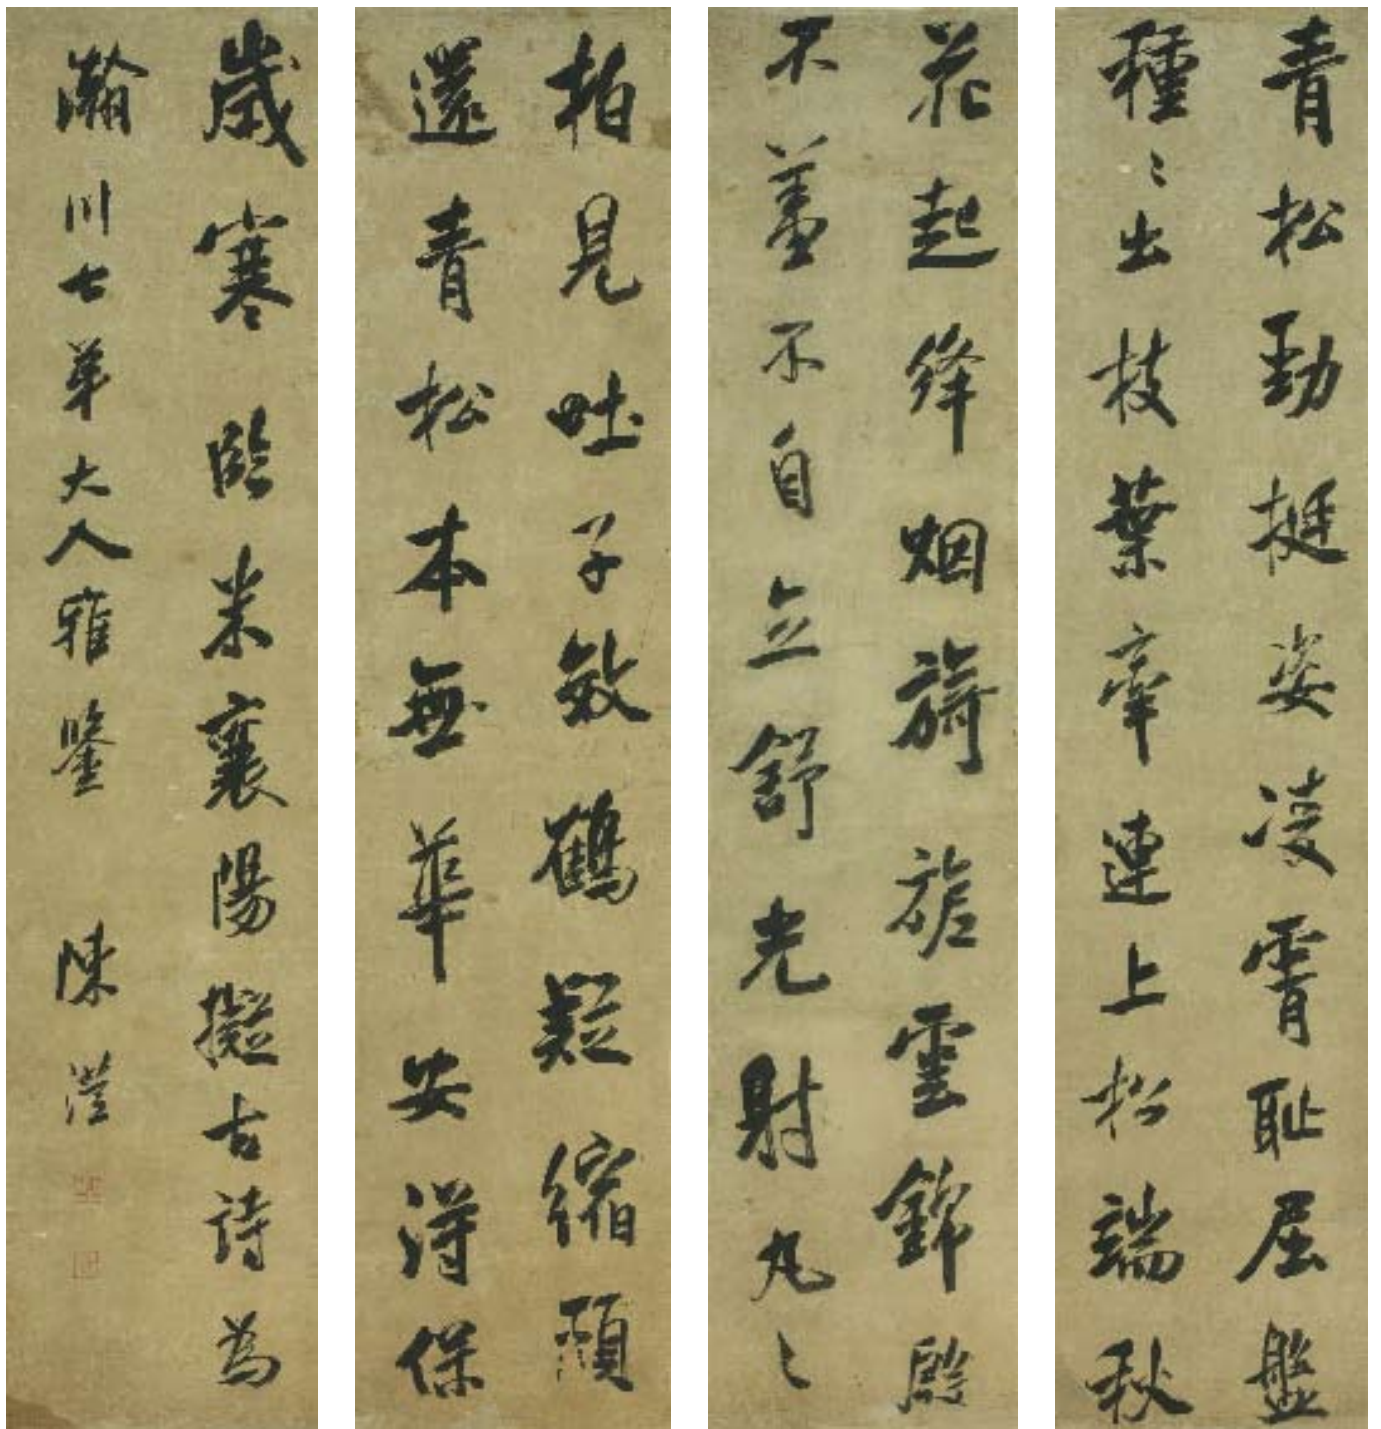 青松勁挺姿凌霄耻屈盤
種〻出枝葉牽連上松端秋
花起絳烟旖旎雲錦殷
不羞不自立舒光射丸〻
柏見吐子效鶴疑縮頸
還青松本無華安得保
歲寒臨米襄陽擬古詩為
瀚川七弟大人雅鑒 陳澧